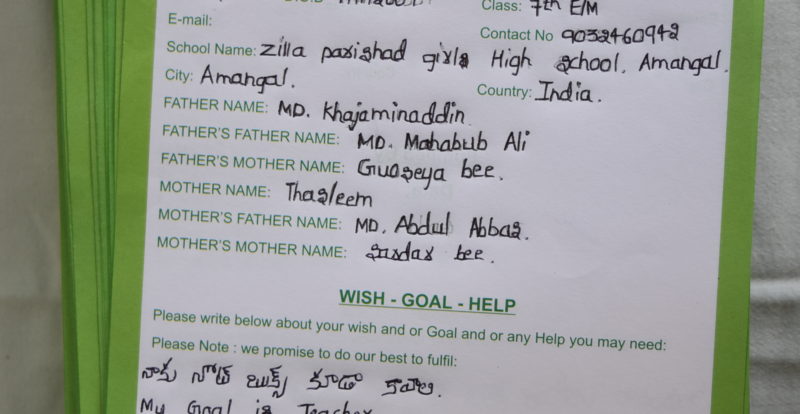 Class: 7th E/M
E-mail:
Contact No 9032460942
School Name: Zilla parishad girls High School, Amangal.
City: Amangal.
Country: India.
FATHER NAME: MD. Khajaminaddin
FATHER'S FATHER NAME: MD. Mahabub Ali
FATHER'S MOTHER NAME: Guoseya bee.
MOTHER NAME: Thasleem
MOTHER'S FATHER NAME: MD. Abdul Abbas.
MOTHER'S MOTHER NAME: Sardar bee.
WISH - GOAL - HELP
Please write below about your wish and or Goal and or any Help you may need:
Please Note : we promise to do our best to fulfil:
నాకు నోట్ బుక్స్ కూడా కావాలి.
My Goal is Teacher